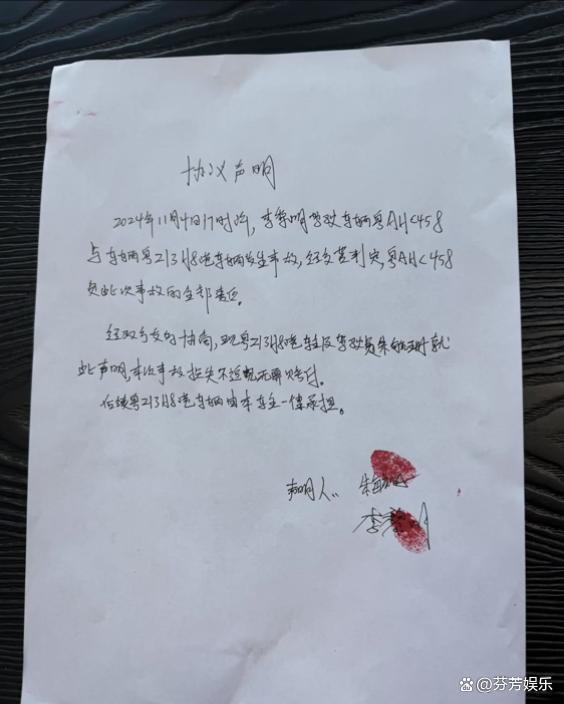 协议声明
2024年11月4日17时许，李 明驾驶车辆粤AH<458
与车辆粤Z13H8港车辆发生事故，经交警判定，粤AH<458
负此次事故的全部责任。
经双方友好协商，现粤Z13H8港车主及驾驶员朱 就
此声明，本次事故损失不追究无需赔付。
后续粤Z13H8港车辆由本车主一律承担。
声明人：朱
李 明
@芬芳娱乐